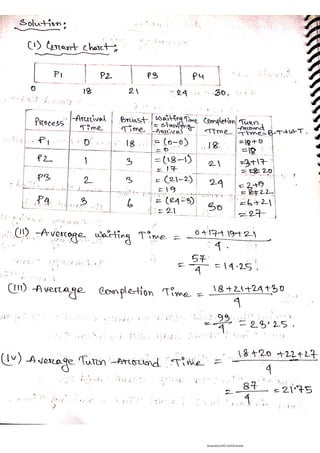 Solution:
(I) Gannt chart:
P1 P2 P3 P4
0 18 21 24 30.
Process Arrival Time Brust Time Waiting Time = Starting - Arrival Completion Time Turn Around Time = B.T + W.T.
P1 0 18 = (0-0) = 0 18 = 18+0 = 18
P2 1 3 = (18-1) = 17 21 = 3+17 = 20
P3 2 3 = (21-2) = 19 24 = 3+19 = 22
P4 3 6 = (24-3) = 21 30 = 6+21 = 27
(II) Average waiting Time = 0+17+19+21
4
= 57/4 = 14.25.
(III) Average Completion Time = 18+21+24+30
4
= 93/4 = 23.25.
(IV) Average Turn Around Time = 18+20+22+27
4
= 87/4 = 21.75
Scanned with CamScanner